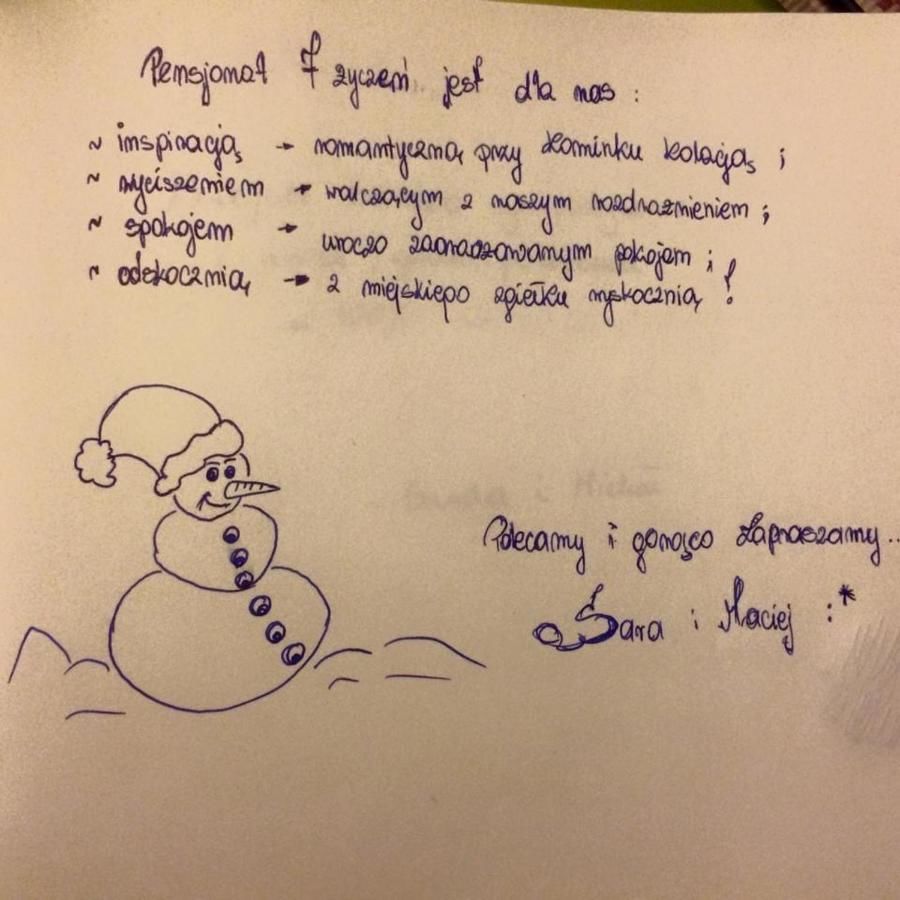 Pensjonat 7 życzeń jest dla nas :
~ inspiracją → romantyczną przy kominku kolacją ;
~ wyciszeniem → walczącym z naszym rozdrażnieniem ;
~ spokojem → uroczo zaaranżowanym pokojem ;
~ odskocznią → z miejskiego zgiełku wyskocznią !
Polecamy i gorąco zapraszamy..
Sara i Maciej :*